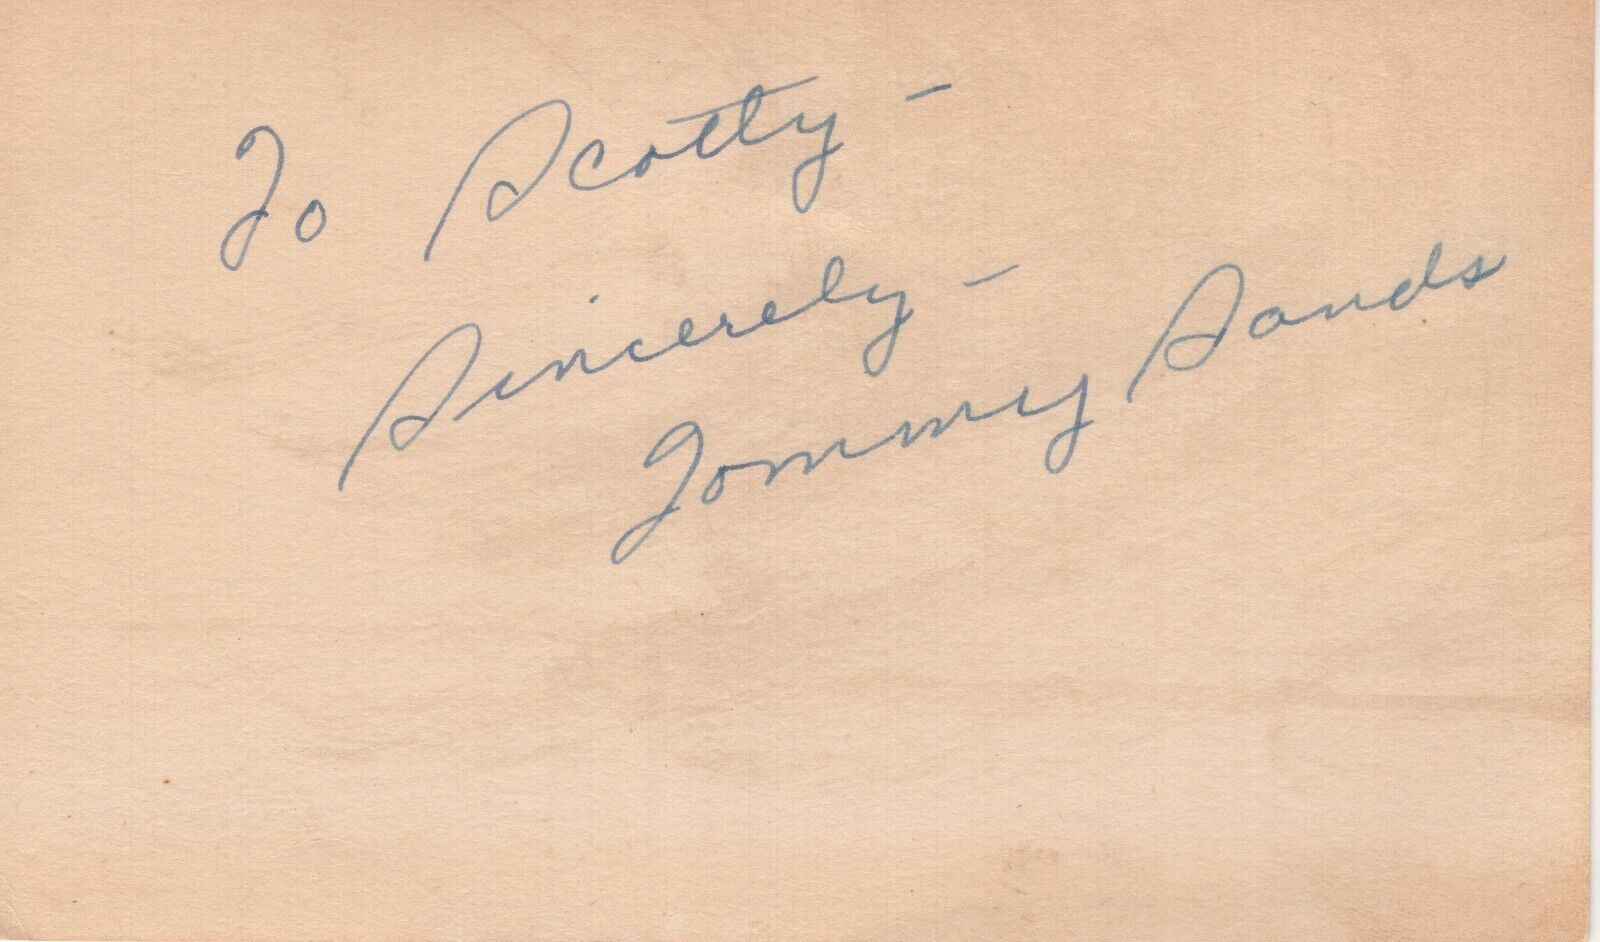 To Scotty -
Sincerely -
Tommy Sands